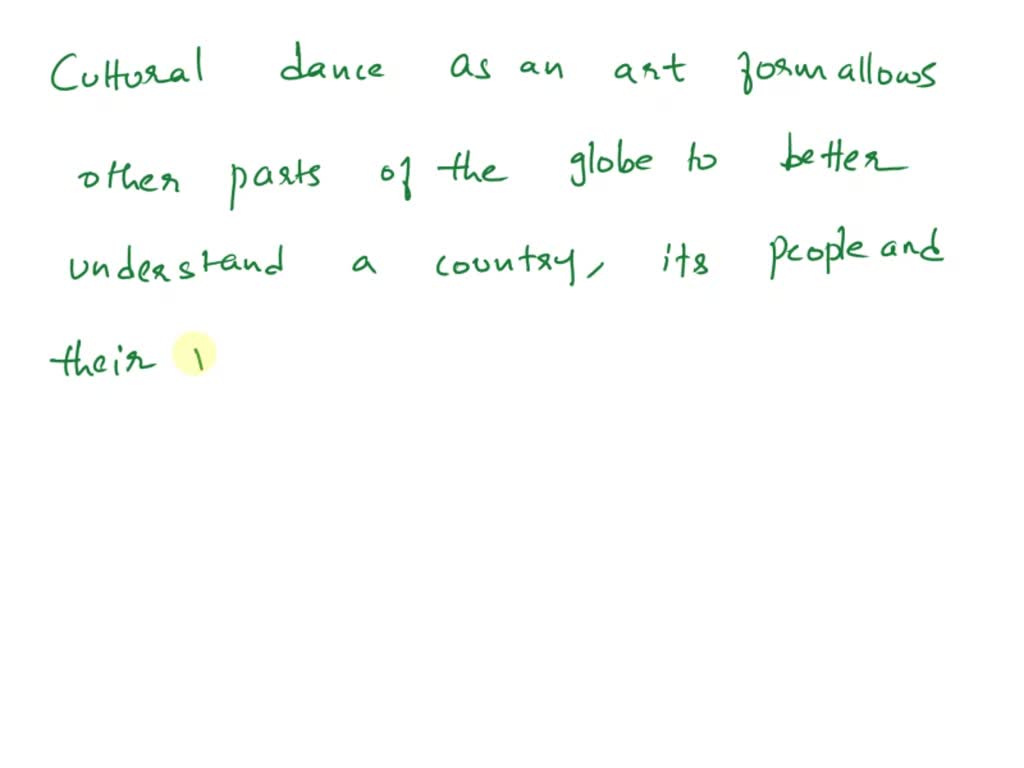 Cultural dance as an art form allows
other parts of the globe to better
understand a country, its people and
their